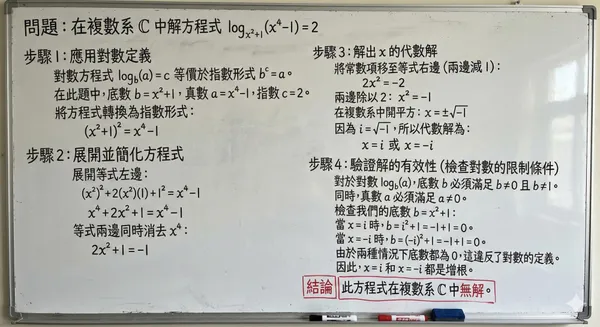 問題：在複數系 ℂ 中解方程式 log_{x²+1}(x⁴-1)=2
步驟1：應用對數定義
對數方程式 log_b(a)=c 等價於指數形式 b^c=a。
在此題中，底數 b=x²+1，真數 a=x⁴-1，指數 c=2。
將方程式轉換為指數形式：
(x²+1)²=x⁴-1
步驟2：展開並簡化方程式
展開等式左邊：
(x²)²+2(x²)(1)+1²=x⁴-1
x⁴+2x²+1=x⁴-1
等式兩邊同時消去 x⁴：
2x²+1=-1
步驟3：解出 x 的代數解
將常數項移至等式右邊（兩邊減1）：
2x²=-2
兩邊除以2：x²=-1
在複數系中開平方：x=±√-1
因為 i=√-1，所以代數解為：
x=i 或 x=-i
步驟4：驗證解的有效性（檢查對數的限制條件）
對於對數 log_b(a)，底數 b 必須滿足 b≠0 且 b≠1。
同時，真數 a 必須滿足 a≠0。
檢查我們的底數 b=x²+1：
當 x=i 時，b=i²+1=-1+1=0。
當 x=-i 時，b=(-i)²+1=-1+1=0。
由於兩種情況下底數都為0，這違反了對數的定義。
因此，x=i 和 x=-i 都是增根。
結論 此方程式在複數系 ℂ 中無解。